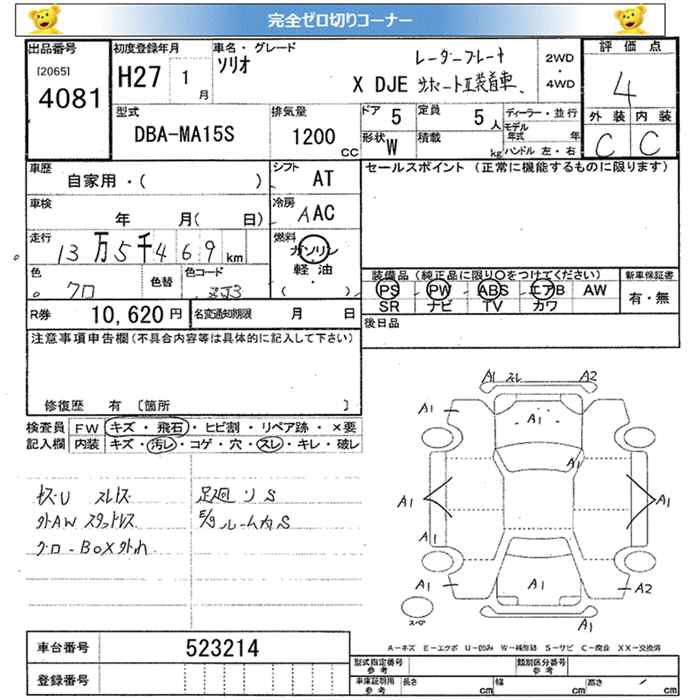 完全ゼロ切りコーナー
出品番号 [2065] 4081
初度登録年月 H27 1月
車名・グレード ソリオ X DJE
レーダーブレーキ
サポートⅡ装着車
2WD・4WD
評価点 4
外装 C 内装 C
型式 DBA-MA15S
排気量 1200 CC
ドア 5 定員 5人
形状 W 積載 kg
ディーラー・並行
モデル年式 年
ハンドル 左・右
車歴 自家用・( )
シフト AT
車検 年 月( 日)
冷房 AAC
走行 13万5千469km
燃料 ガソリン 軽油 ( ・ )
色 クロ 色替 色コード ZJ3
R券 10,620円 名変通知期限 月 日
セールスポイント (正常に機能するものに限ります)
装備品 (純正品に限り○をつけてください) 新車保証書
PS PW ABS エアB AW 有・無
SR ナビ TV カワ
後日品
注意事項申告欄(不具合内容等は具体的に記入して下さい)
修復歴 有 〔箇所 〕
検査員記入欄 FW キズ・飛石・ヒビ割・リペア跡・×要
内装 キズ・汚レ・コゲ・穴・スレ・キレ・破レ
スレキズ
外AW スタッドレス
グローBOX外れ
足廻りS
E/gルーム内S
A1 スレ A2
A1
A1
A1 A1
A1
A1 A1 A2
A1
スペア
A-キズ E-エクボ U-凹み W-補修跡 S-サビ C-腐食 XX-交換済
車台番号 523214
登録番号
型式指定番号 参考 類別区分番号 参考
車庫証明用 参考 長さ cm 幅 cm 高さ cm